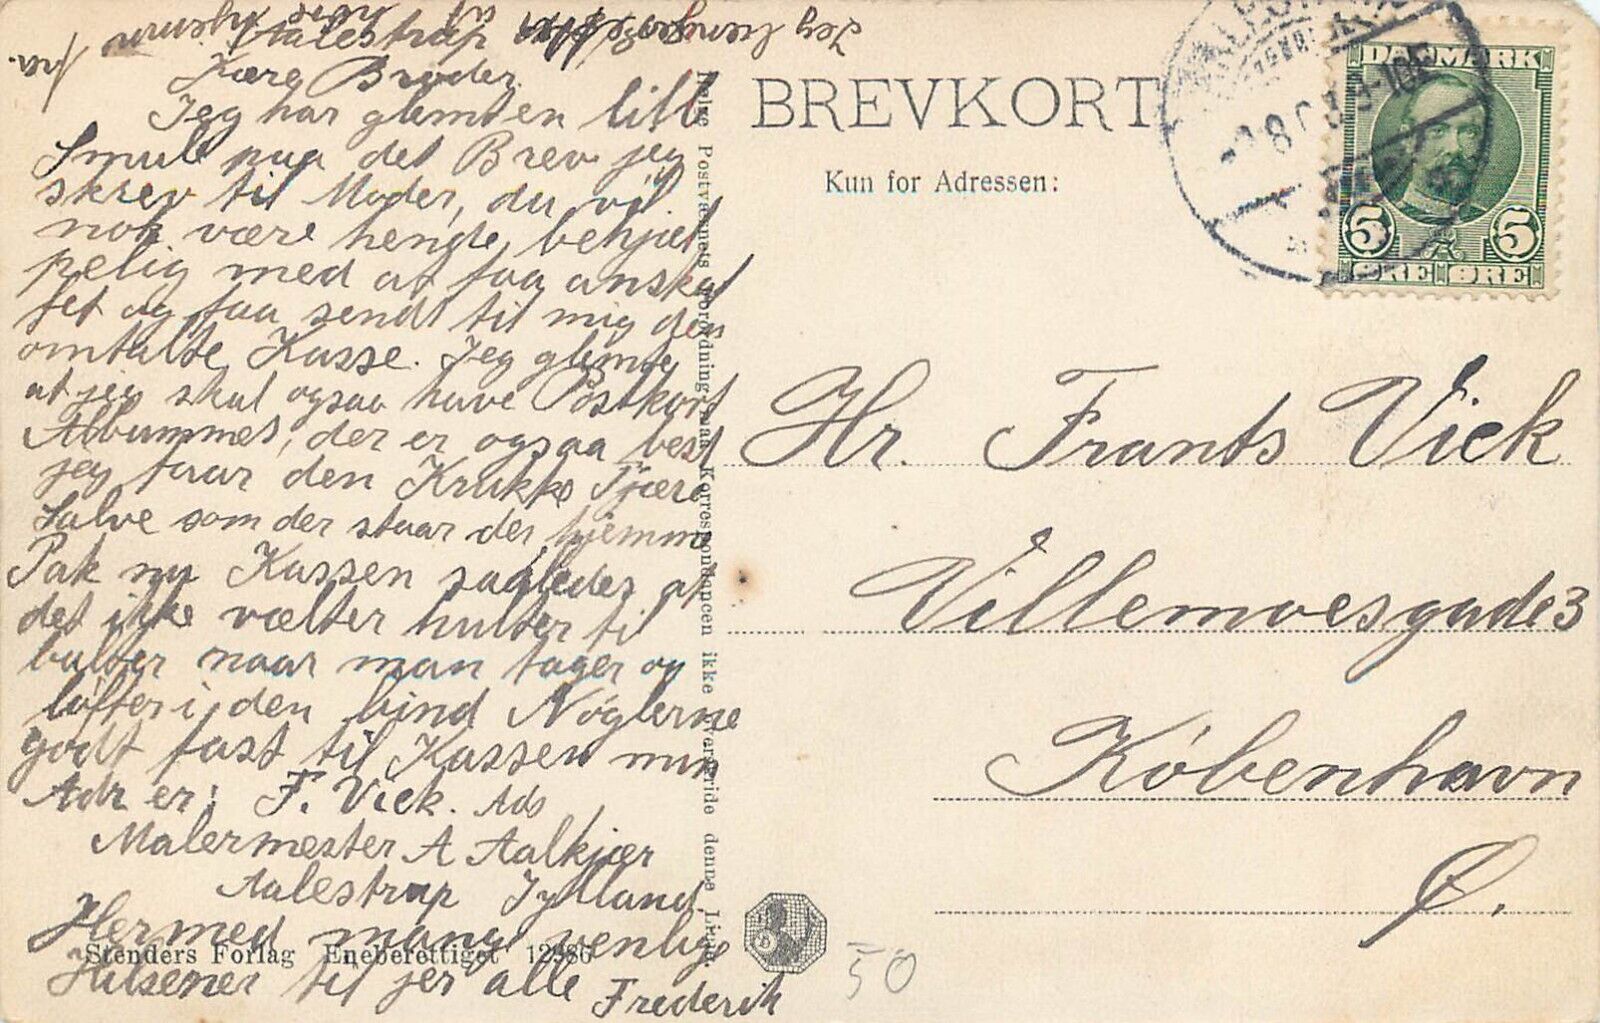 Aalestrup
Kære Broder.
Jeg har glemt en lille
Smule paa det Brev jeg
skrev til Moder, du vil
nok være henste behjel
pelig med at faa anskaf
fet og faa sendt til mig den
omtalte Kasse. Jeg glemte
at jeg skal ogsaa have Postkort
Albummet, der er ogsaa best
jeg faar den Krukke Tjære
Salve som der staar der hjemme
Pak nu Kassen saaledes at
det ikke vælter hulter til
bulter naar man tager og
løfter i den bind Nöglerne
godt fast til Kassen min
Adr er: F. Vick. Ads
Malermester A Aalkjær
Aalestrup Jylland
Hermed mange venlige
Hilsener til jer alle Frederik
Stenders Forlag Eneberettiget 12986
Ifølge Postvæsnets Forordning maa Korrespondancen ikke overskride denne Linie.
BREVKORT
Kun for Adressen:
DANMARK
5 5
ØRE ØRE
Hr. Frants Vick
Villemoesgade 3
København
Ø.
50